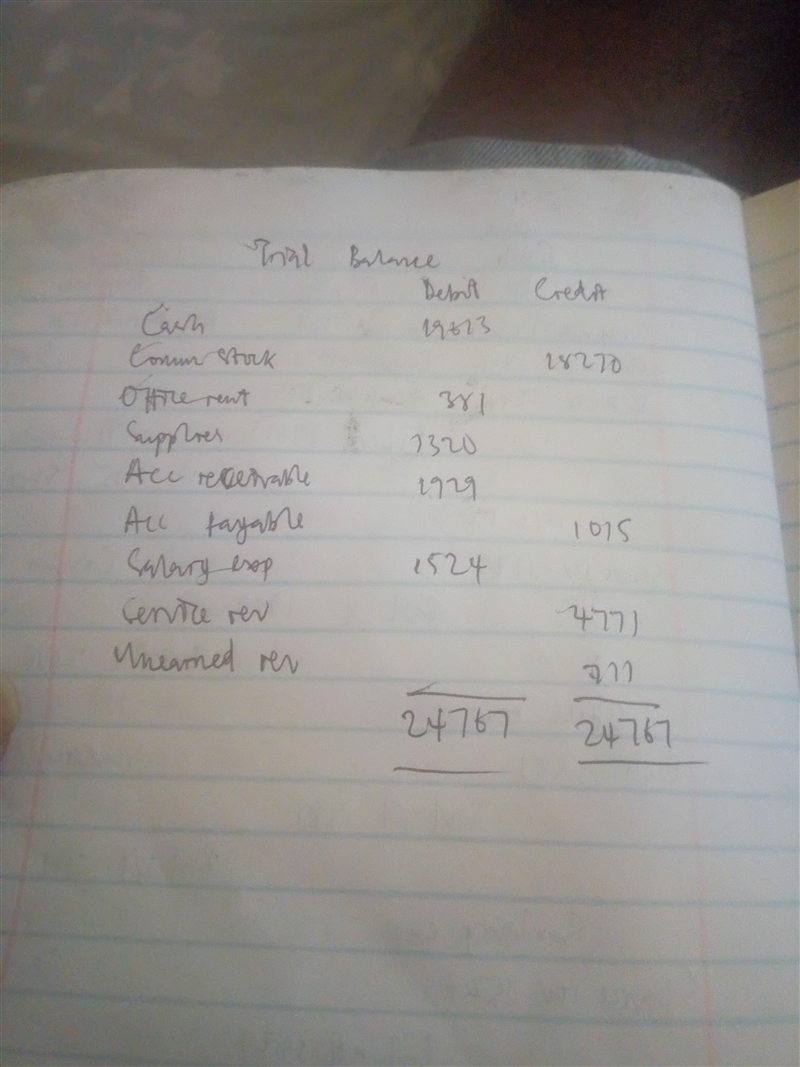 Trial Balance
Debit Credit
Cash 19613
Comm stock 18270
Office rent 381
Supplies 1320
Acc receivable 1929
Acc payable 1015
Salary exp 1524
Service rev 4771
Unearned rev 711
24767 24767